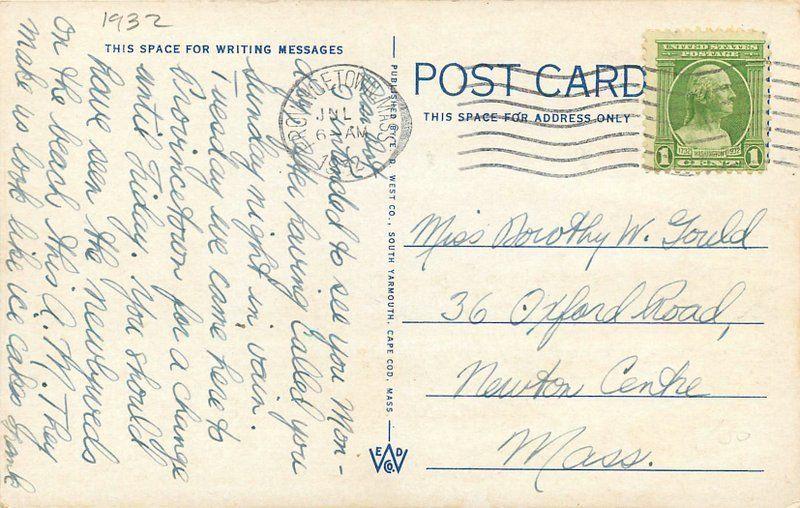 1932
THIS SPACE FOR WRITING MESSAGES
Dear Dot
Intended to see you Mon-
day after having called you
Sunday night in vain.
Tuesday we came here to
Provincetown for a change
until Friday. You should
have seen the newlyweds
on the beach this A.M. They
make us look like ice cakes. Frank
PUBLISHED BY E. D. WEST CO., SOUTH YARMOUTH, CAPE COD, MASS.
E D
W
CO.
PROVINCETOWN MASS
JUL
6
AM
1932
POST CARD
THIS SPACE FOR ADDRESS ONLY
UNITED STATES
POSTAGE
1732 WASHINGTON 1932
1 CENT 1
Miss Dorothy W. Gould
36 Oxford Road,
Newton Centre
Mass.